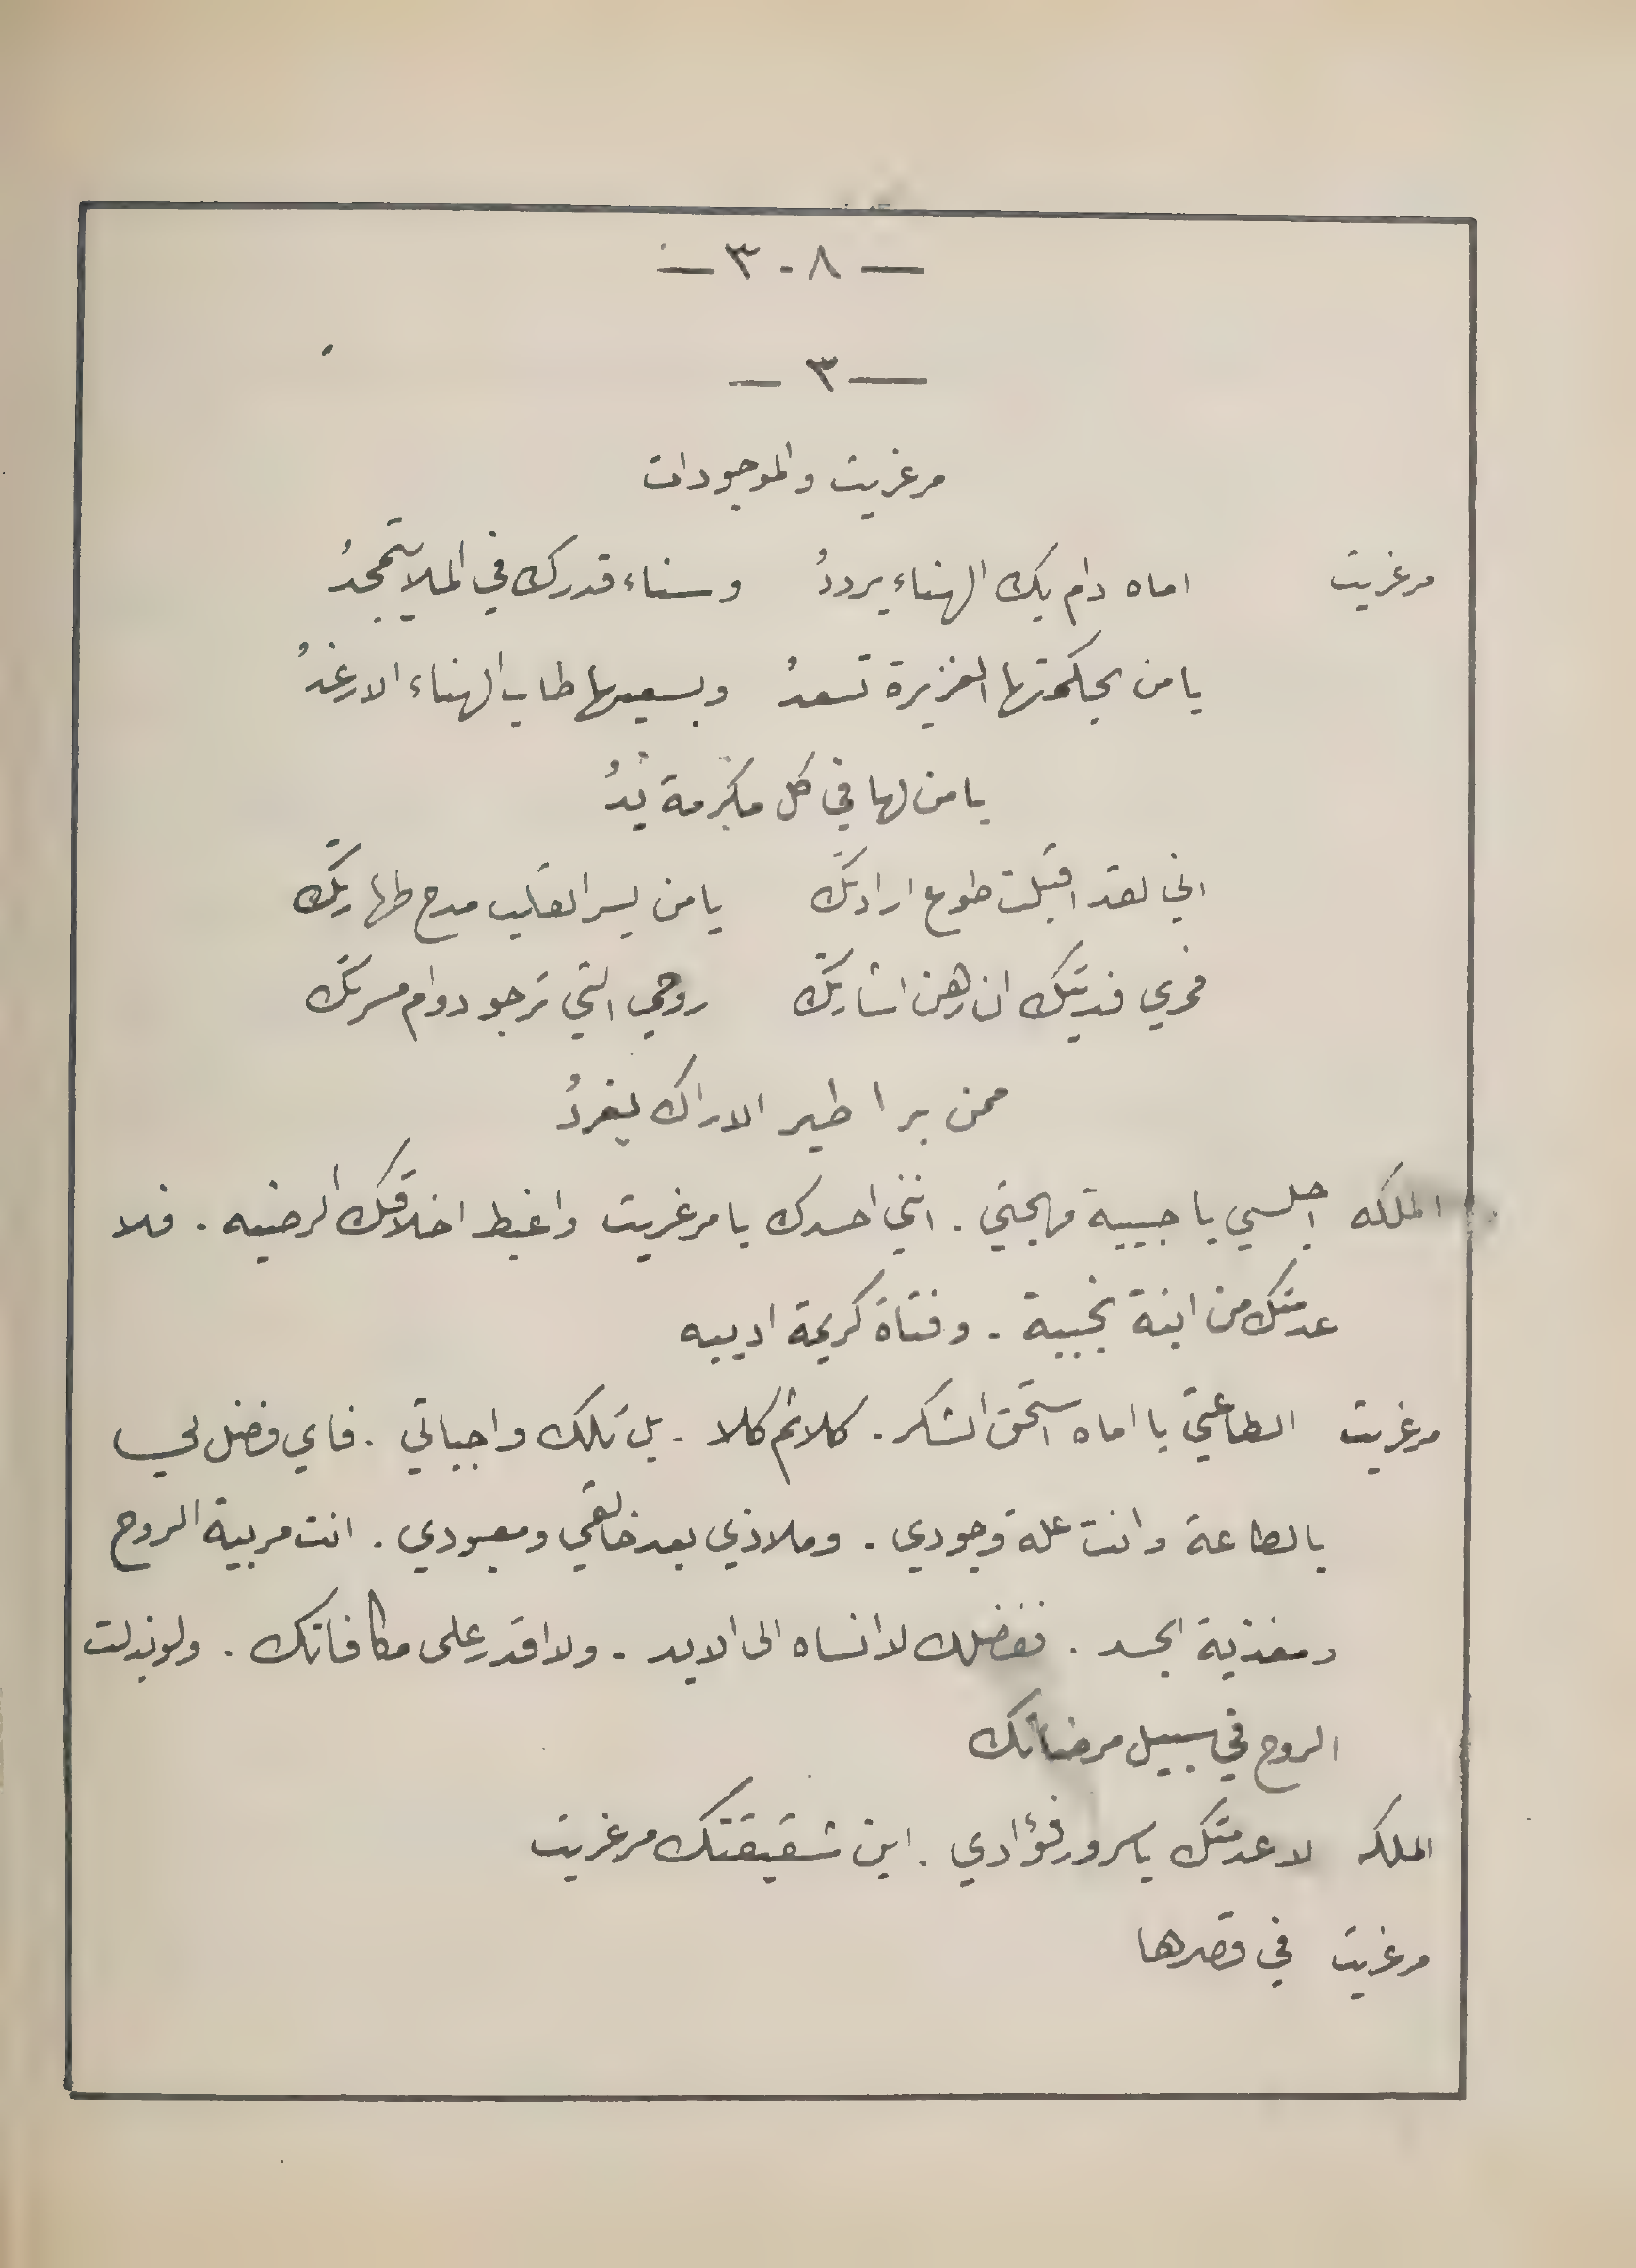 — ٣٠٨ —
— ٣ —
مرغريت والموجودات
مرغريت اماه دام بك الهناء يرددُ وسناء قدرك في الملا يتمجدُ
يا من بحكمتها الغزيرة تسعدُ وبسعيها طاب الهناء الارغدُ
يا من لها في كل مكرمة يدُ
اني لقد اقبلت طوع ارادتك يا من يسر القلب مدح طهارتك
فمري فديتك ان رهن اشارتك روحي التي ترجو دوام مسرتك
ممن برا طير الاراك يغردُ
الملكه اجلسي يا حبيبة مهجتي . انني احسدك يا مرغريت واغبط اخلاقك الرضيه . فلا
عدمتك من ابنة نجيبة . وفتاة كريمة اديبه
مرغريت الطاعتي يا اماه استحق الشكر . كلا ثم كلا . بل تلك واجباتي . فاي فضل لي
بالطاعة وانت علة وجودي . وملاذي بعد خالقي ومعبودي . انت مربية الروح
ومغذية الجسد . ففضلك لا انساه الى الابد . ولا اقدر على مكافاتك . ولو بذلت
الروح في سبيل مرضاتك
الملكه لا عدمتك يا سرور فؤادي . اين شقيقتك مرغريت
مرغريت في قصرها